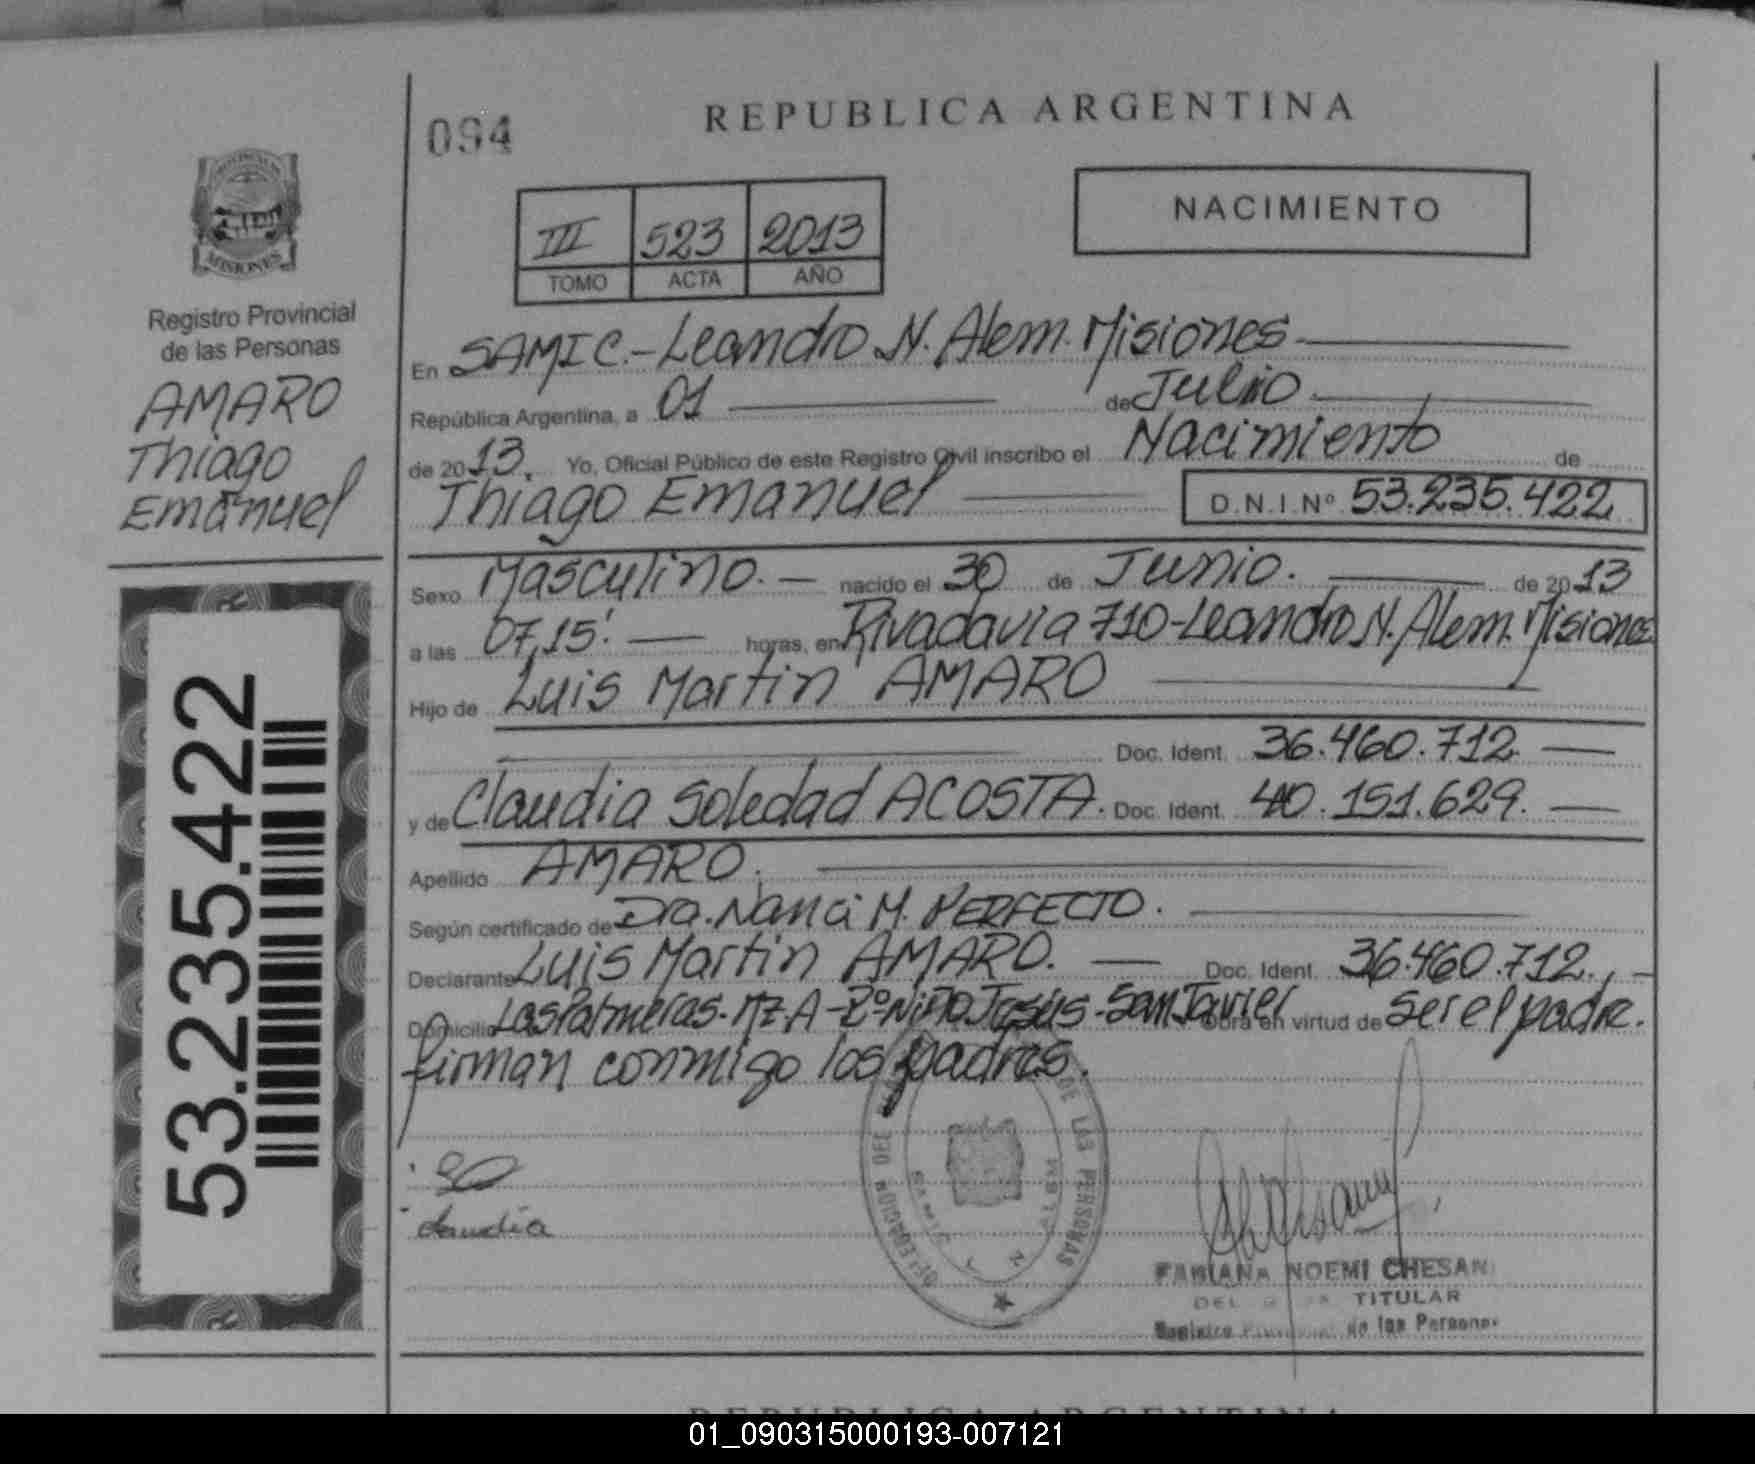 REPUBLICA ARGENTINA
094
NACIMIENTO
III 523 2013
TOMO ACTA AÑO
MISIONES
Registro Provincial
de las Personas
AMARO
Thiago
Emanuel
53.235.422
En SAMIC.-Leandro N. Alem. Misiones.
República Argentina, a 01 de Julio
de 2013. Yo, Oficial Público de este Registro Civil inscribo el Nacimiento de
Thiago Emanuel D.N.I.Nº 53.235.422
Sexo Masculino. nacido el 30 de Junio. de 2013
a las 07,15'. horas, en Rivadavia 710-Leandro N. Alem. Misiones
Hijo de Luis Martin AMARO
Doc. Ident. 36.460.712.
y de Claudia Soledad ACOSTA. Doc. Ident. 40.151.629.
Apellido AMARO.
Según certificado de Dra. Nanci M. PERFECTO.
Declarante Luis Martin AMARO. Doc. Ident. 36.460.712.,
Domicilio Las Palmeras. Mz A - Bº Niño Jesús - San Javier Obra en virtud de ser el padre.
firman conmigo los padres.
Claudia
DELEGACION DEL DE LAS PERSONAS
SAMIC L N ALEM
FABIANA NOEMI CHESANI
TITULAR
Registro Provincial de las Personas
REPUBLICA ARGENTINA
01_090315000193-007121